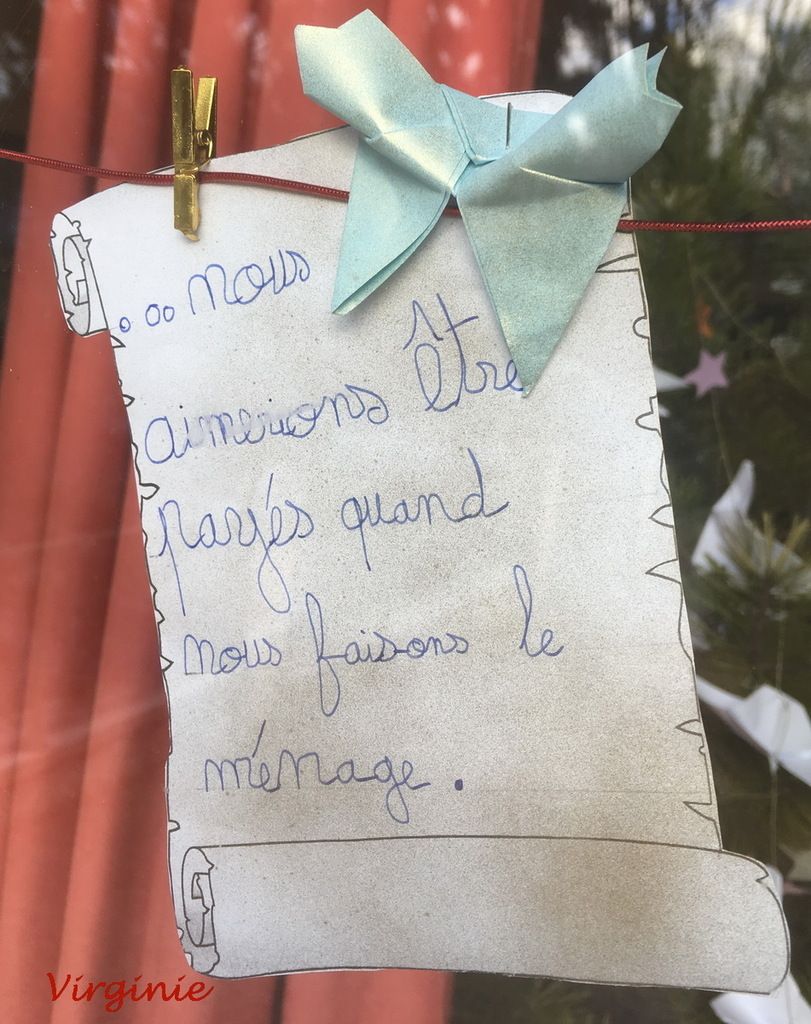 ...nous
aimerions être
payés quand
nous faisons le
ménage.
Virginie